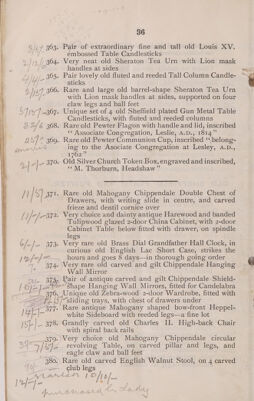 36
363. Pair of extraordinary fine and tall old Louis XV.
embossed Table Candlesticks
364. Very neat old Sheraton Tea Urn with Lion mask
handles at sides
365. Pair lovely old fluted and reeded Tall Column Candle-
sticks
366. Rare and large old barrel-shape Sheraton Tea Urn
with Lion mask handles at sides, supported on four
claw legs and ball feet
367. Unique set of 4 old Sheffield plated Gun Metal Table
Candlesticks, with fluted and reeded columns
368. Rare old Pewter Flagon with handle and lid, inscribed
"Associate Congregation, Leslie, A.D., 1814"
369. Rare old Pewter Communion Cup, inscribed "belong-
ing to the Asociate Congregation at Lesley, A.D.,
1762"
370. Old Silver Church Token Box, engraved and inscribed,
"M. Thorburn, Headshaw"
371. Rare old Mahogany Chippendale Double Chest of
Drawers, with writing slide in centre, and carved
frieze and dentil cornice over
372. Very choice and dainty antique Harewood and banded
Tulipwood glazed 2-door China Cabinet, with 2-door
Cabinet Table below fitted with drawer, on spindle
legs
373. Very rare old Brass Dial Grandfather Hall Clock, in
curious old English Lac Short Case, strikes the
hours and goes 8 days—in thorough going order
374. Very rare old carved and gilt Chippendale Hanging
Wall Mirror
375. Pair of antique carved and gilt Chippendale Shield-
Shape Hanging Wall Mirrors, fitted for Candelabra
376. Unique old Zebra-wood 2-door Wardrobe, fitted with
sliding trays, with chest of drawers under
377. Rare antique Mahogany shaped bow-front Heppel-
white Sideboard with reeded legs—a fine lot
378. Grandly carved old Charles II. High-back Chair
with spiral back rails
379. Very choice old Mahogany Chippendale circular
revolving Table, on carved pillar and legs, and
eagle claw and ball feet
380. Rare old carved English Walnut Stool, on 4 carved
club legs